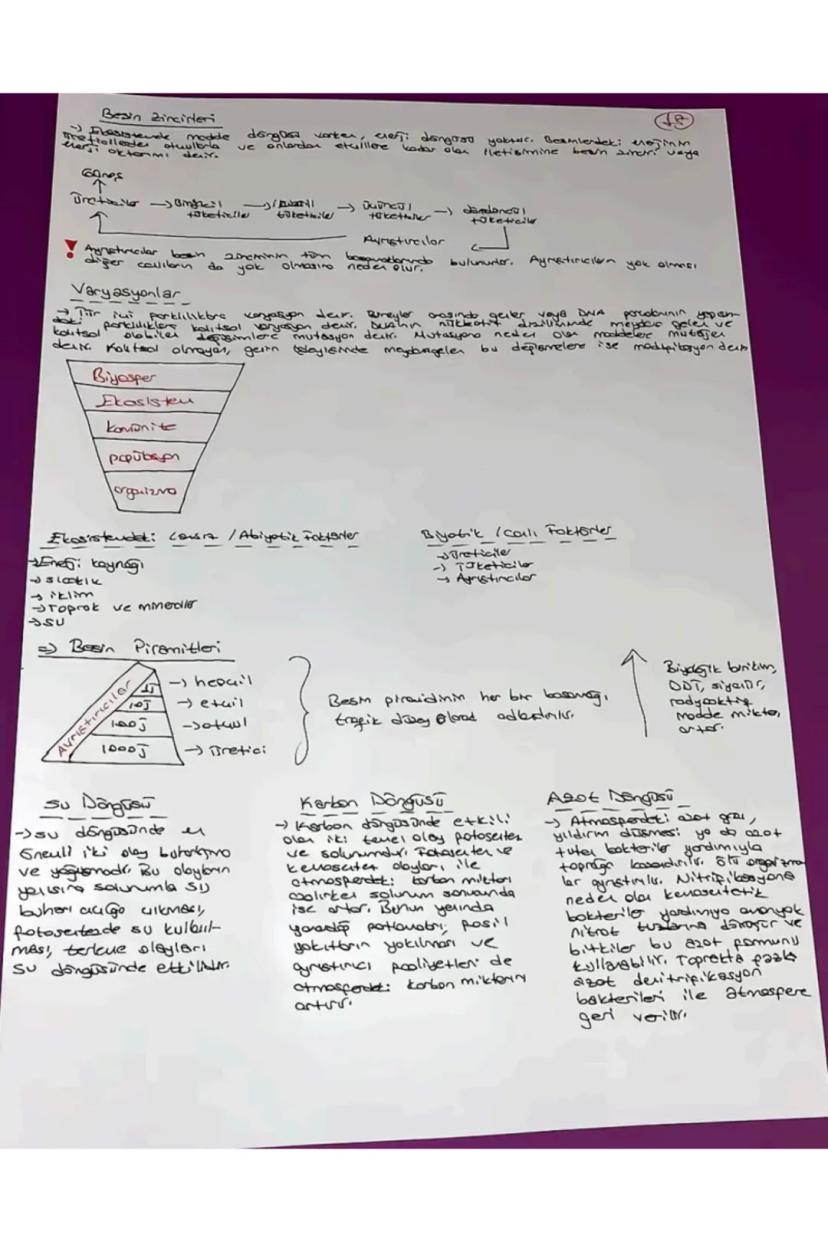 Besin zincirleri
18
→ Ekosistemde madde döngüsü varken, enerji döngüsü yoktur. Besinlerdeki enerjinin
üreticilerden otçullara ve onlardan etçillere kadar olan iletişimine besin zinciri veya
enerji aktarımı denir.
Güneş
Üreticiler → Birincil tüketiciler → ikincil tüketiciler → üçüncül tüketiciler → dördüncül tüketiciler
Ayrıştırıcılar
! Ayrıştırıcılar besin zincirinin tüm basamaklarında bulunurlar. Ayrıştırıcıların yok olması
diğer canlıların da yok olmasına neden olur.
Varyasyonlar
→ Tür içi farklılıklara varyasyon denir. Bireyler arasında genler veya DNA parçasının yapısın-
daki farklılıklara kalıtsal varyasyon denir. DNA'nın nükleotit diziliminde meydana gelen ve
kalıtsal olabilen değişimlere mutasyon denir. Mutasyona neden olan maddelere mutajen
denir. Kalıtsal olmayan, genin işleyişinde meydana gelen bu değişmelere ise modifikasyon denir
Biyosfer
Ekosistem
komünite
popülasyon
organizma
Ekosistemdeki Cansız / Abiyotik Faktörler
→ Enerji kaynağı
→ sıcaklık
→ iklim
→ Toprak ve mineraller
→ su
Biyotik / Canlı Faktörler
→ Üreticiler
→ Tüketiciler
→ Ayrıştırıcılar
⇒ Besin Piramitleri
Ayrıştırıcılar
1J → hepçil
10J → etçil
100J → otçul
1000J → Üretici
Besin piramidinin her bir basamağı,
trofik düzey olarak adlandırılır.
Biyolojik birikim,
DDT, siyanür,
radyoaktif
madde miktarı
artar.
Su Döngüsü
→ su döngüsünde en
önemli iki olay buharlaşma
ve yağışmadır. Bu olayların
yanısıra solunumla su
buharı açığa çıkması,
fotosentezde su kullanıl-
ması, terleme olayları
su döngüsünde etkilidir.
Karbon Döngüsü
→ Karbon döngüsünde etkili
olan iki temel olay fotosentez
ve solunumdur. Fotosentez ve
kemosentez olayları ile
atmosferdeki karbon miktarı
azalırken solunum sonucunda
ise artar. Bunun yanında
yanardağ patlamaları, fosil
yakıtların yakılması ve
ayrıştırıcı faaliyetleri de
atmosferdeki karbon miktarını
artırır.
Azot Döngüsü
→ Atmosferdeki azot gazı,
yıldırım düşmesi ya da azot
tutan bakteriler yardımıyla
toprağa kazandırılır. Ölü organizma-
lar ayrıştırılır. Nitrifikasyona
neden olan kemosentetik
bakteriler yardımıyla amonyak
nitrat tuzlarına dönüşür ve
bitkiler bu azot formunu
kullanabilir. Toprakta fazla
azot denitrifikasyon
bakterileri ile atmosfere
geri verilir.